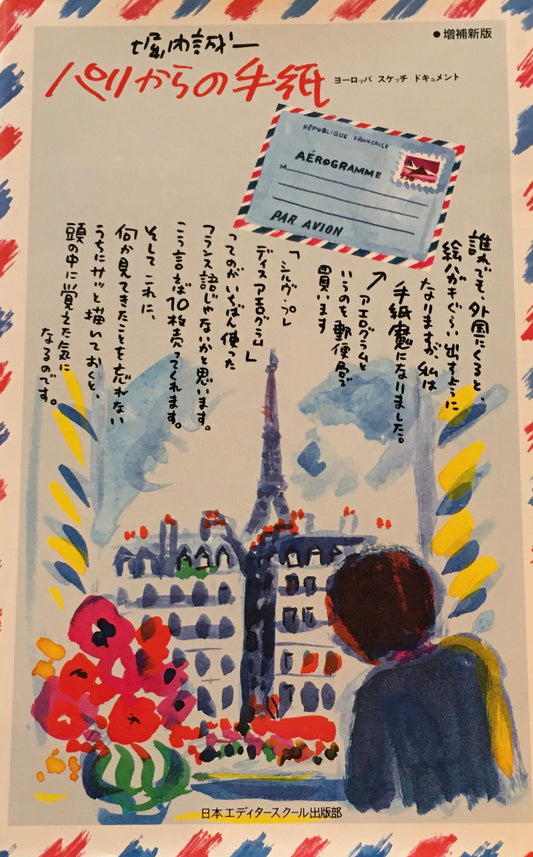 ●増補新版
堀内誠一
パリからの手紙
ヨーロッパ スケッチ ドキュメント
RÉPUBLIQUE FRANÇAISE
AÉROGRAMME
M
PAR AVION
誰れでも、外国にくると、
絵ハガキぐらい出すように
なりますが、私は
手紙魔になりました。
アエログラムと
いうのを郵便局で
買います
「シルヴ・プレ
ディスアエログラム」
ってのがいちばん使った
フランス語じゃないかと思います。
こう言えば10枚売ってくれます。
そして これに、
何か見てきたことを忘れない
うちにサッと描いておくと、
頭の中に覚えた気に
なるのです。
日本エディタースクール出版部